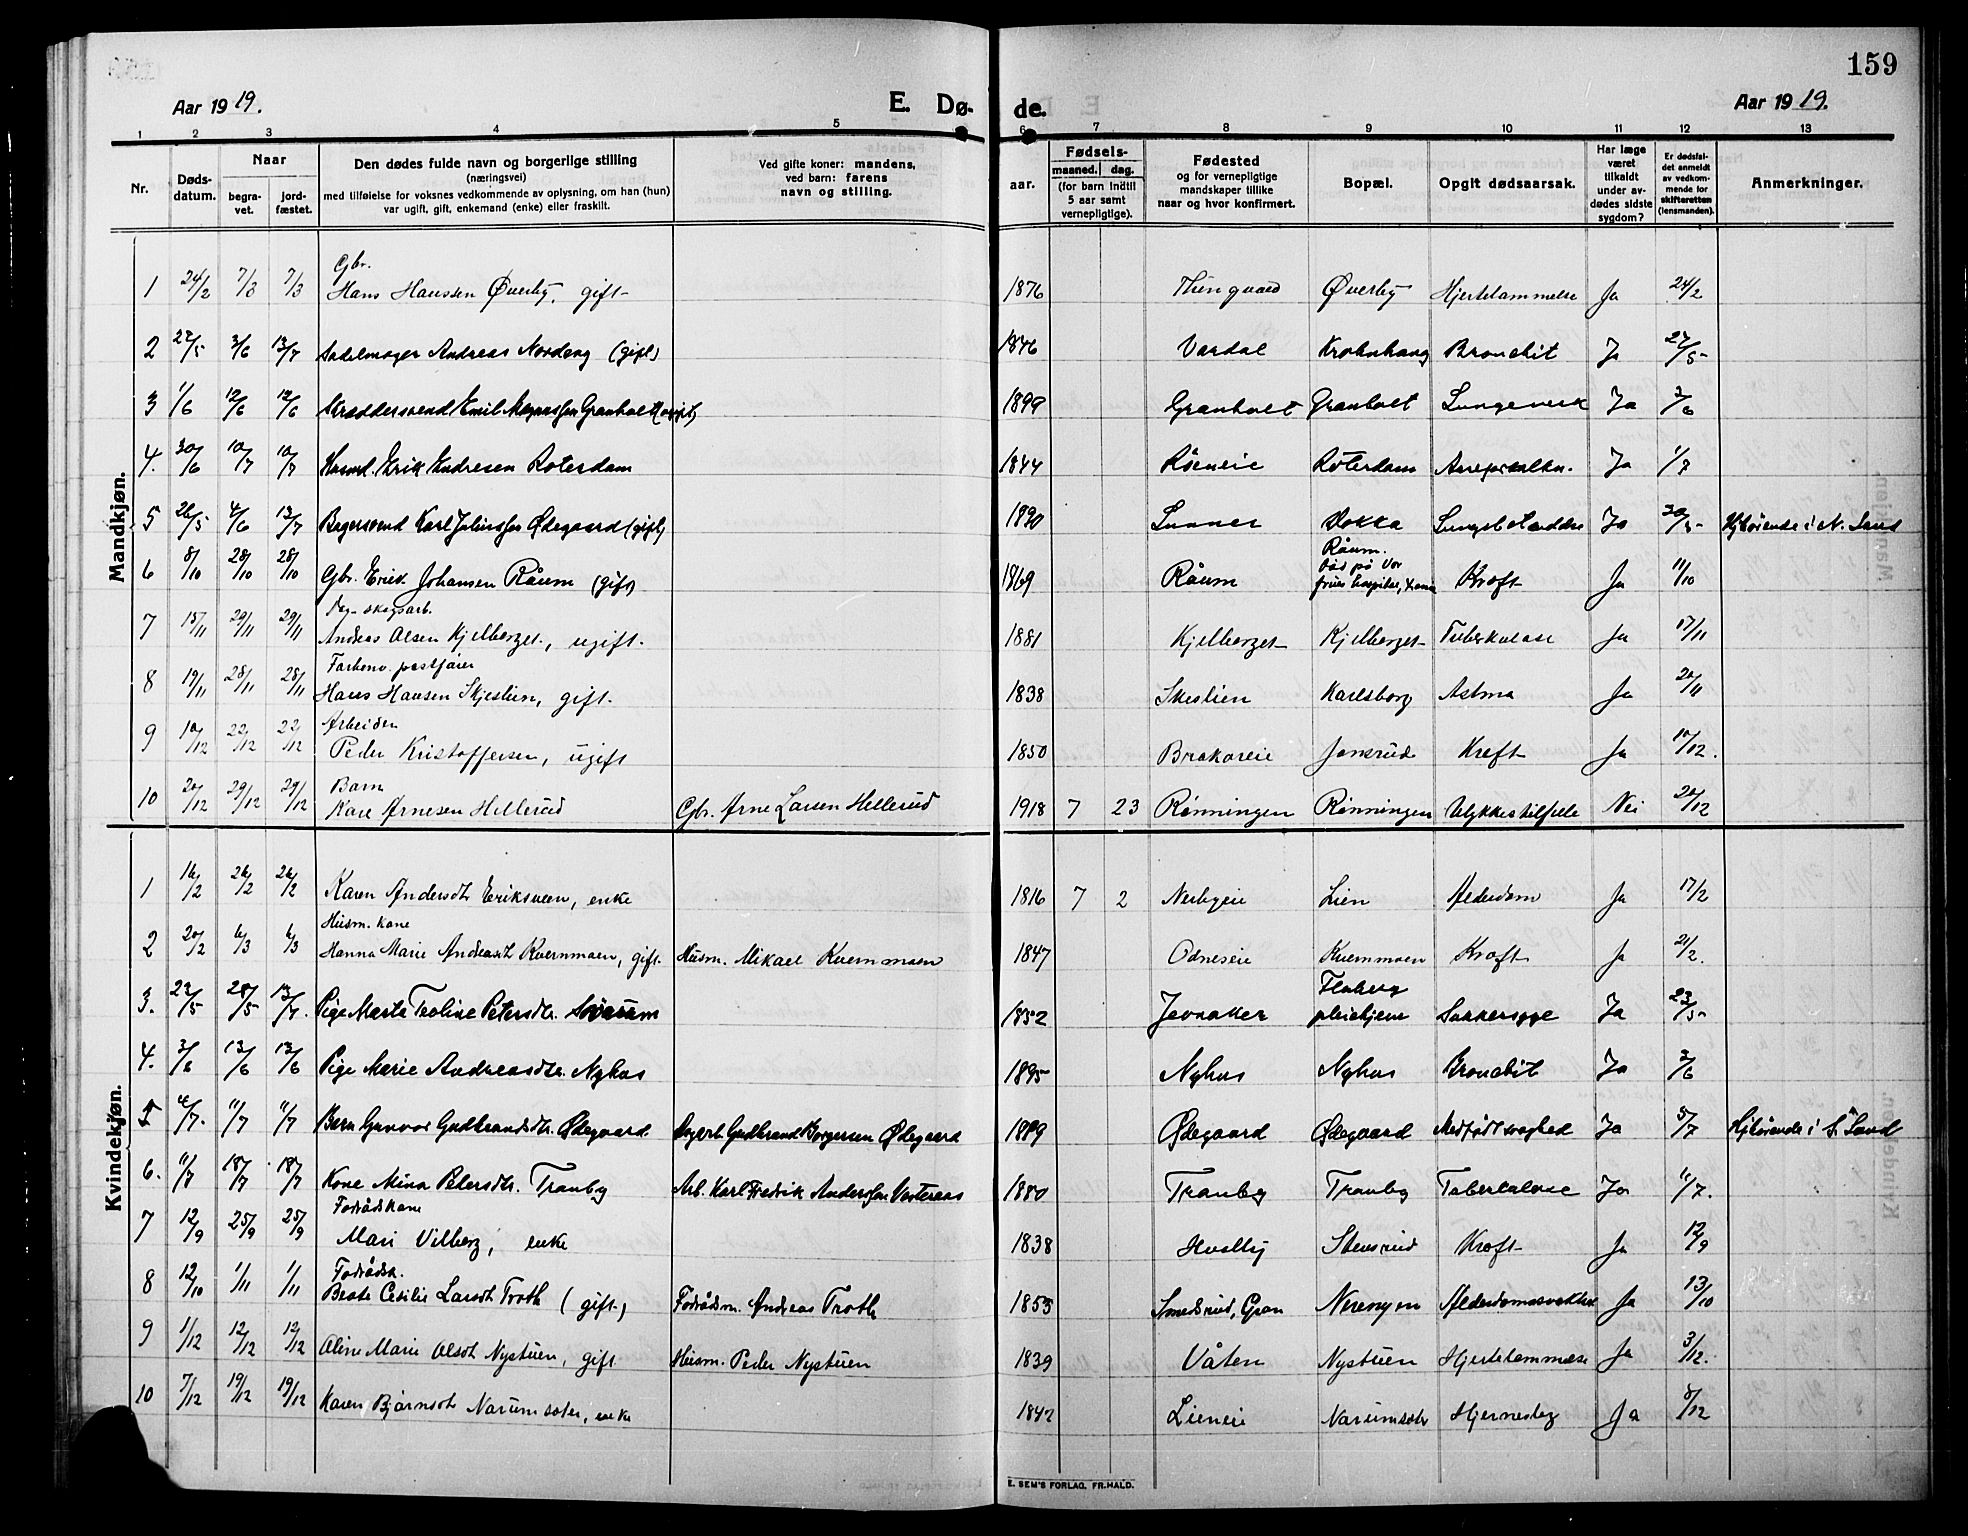 159
Aar 1919. E. Dø- de. Aar 1919.
1 2 3 4 5 6 7 8 9 10 11 12 13
Nr.
Døds-
datum.
Naar
begra-
vet.
jord-
fæstet.
Den dødes fulde navn og borgerlige stilling
(næringsvei)
med tilføielse for voksnes vedkommende av oplysning, om han (hun)
var ugift, gift, enkemand (enke) eller fraskilt.
Ved gifte koner: mandens,
ved barn: farens
navn og stilling.
aar.
Fødsels-
maaned. dag.
(for barn indtil
5 aar samt
vernepligtige).
Fødested
og for vernepligtige
mandskaper tillike
naar og hvor konfirmert.
Bopæl.
Opgit dødsaarsak.
Har læge
været
tilkaldt
under av-
dødes sidste
sygdom?
Er dødsfal-
det anmeldt
av vedkom-
mende for
skifteretten
(lensmanden).
Anmerkninger.
Mandkjøn.
Gbr.
1 24/2 7/3 7/3 Hans Hanssen Øverby, gift 1876 Øverby Hjertelammelse Ja 24/2
2 22/5 3/6 13/7 Sadelmager Andreas Nordeng (gift) 1846 Vardal Bronchit Ja 27/5
3 1/6 12/6 12/6 Skræddersvend Emil Granholt 1899 Granholt Granholt Ja 2/6
4. 30/6 10/7 10/7 Husmd. Erik Andresen Roterdam 1844 Roterdam Ja 1/7
5 26/5 4/6 13/7 Bagersvend Karl Ødegaard (gift) 1890 Lunner Dokka Ja 30/5 Hjhørende i N. Land
6 8/10 28/10 28/10 Gbr. Erik Johansen Råum (gift) 1869 Råum Råum.
Død på Vor
frues hospital, Kra Kræft Ja 11/10
Dag- skogsarb.
7 15/11 29/11 29/11 Andreas Olsen Kjelberget, ugift. 1881 Kjelberget Kjelberget Tuberkulose Ja 17/11
Forhenv. postfører
8 19/11 28/11 28/11 Hans Hansen Skjeslien, gift. 1838 Skeslien Karlsborg Astma Ja 20/11
Arbeider
9 10/12 22/12 22/12 Peder Kristoffersen, ugift 1850 Brakareie Jonsrud Kreft Ja 10/12.
Barn
10 20/12 29/12 29/12 Kare Arnesen Hellerud Gbr. Arne Larsen Hellerud 1918 7 23 Rønningen Rønningen Ulykkestilfelle Nei 22/12
Kvindekjøn.
1 16/2 26/2 26/2 Karen Andersdt Eriksveen, enke 1816 7 2 Nerbyeie Lien Alderdom Ja 17/2
Husm. kone
2 20/2 6/3 6/3 Hanna Marie Andreasdt Kvernmoen, gift. Husm. Mikael Kvernmoen 1847 Odneseie Kvernmoen Kræft Ja 21/2.
3. 22/5 28/5 13/7. Pige Marte Teoline Petersdtr. 1852 Jevnaker Fluberg
pleiehjem Sukkersyge Ja 23/5
4. 3/6 13/6 13/6 Pige Marie Andreasdtr. Nyhus 1895 Nyhus Nyhus Bronchit Ja 3/6
5 4/7. 11/7 11/7 Barn Gunvor Gudbrandsdtr. Ødegaard. Dagarb. Gudbrand Borgersen Ødegaard 1919 Ødegaard Ødegaard Medfødt svaghed Ja 5/7 Hjhørende i S. Land
6. 11/7 18/7 18/7 Kone Mina Petersdtr. Tranby Arb. Karl Fredrik Anderssen Vesteraas 1880 Tranby Tranby Tuberkulose Ja 11/7.
Fodrådskone
7 12/9 25/9 25/9 Mari Vilberg, enke 1838 Hvalby Stensrud Kræft Ja 12/9
Fodrådsk.
8 12/10 1/11 1/11 Beate Cesilie Larsdt Troth (gift.) Fodrådsm. Andreas Troth 1853 Smedsrud, Gran Nerengen Alderdomssvakhet Ja 13/10
9 1/12 12/12 12/12 Aline Marie Olsdt Nystuen, gift Husm. Peder Nystuen 1839 Våten Nystuen Hjertelammelse Ja 3/12.
10 7/12 19/12 19/12 Karen Bjørnsdt Narumsæter, enke 1842 Lieneie Narumsæter Hjerneslag Ja 8/12
E. SEM'S FORLAG, FR.HALD.